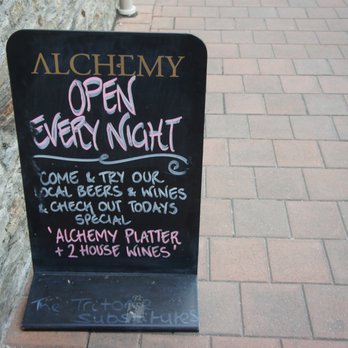 ALCHEMY
OPEN
EVERY NIGHT
COME & TRY OUR
LOCAL BEERS & WINES
& CHECK OUT TODAYS
SPECIAL
'ALCHEMY PLATTER
+ 2 HOUSE WINES'
The Tritone
Substitutes